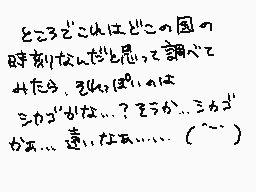 ところでこれはどこの国の
時刻なんだと思って調べて
みたら、それっぽいのは
シカゴかな…?そうか…シカゴ
かぁ…遠いなぁ…‥(^ー^)